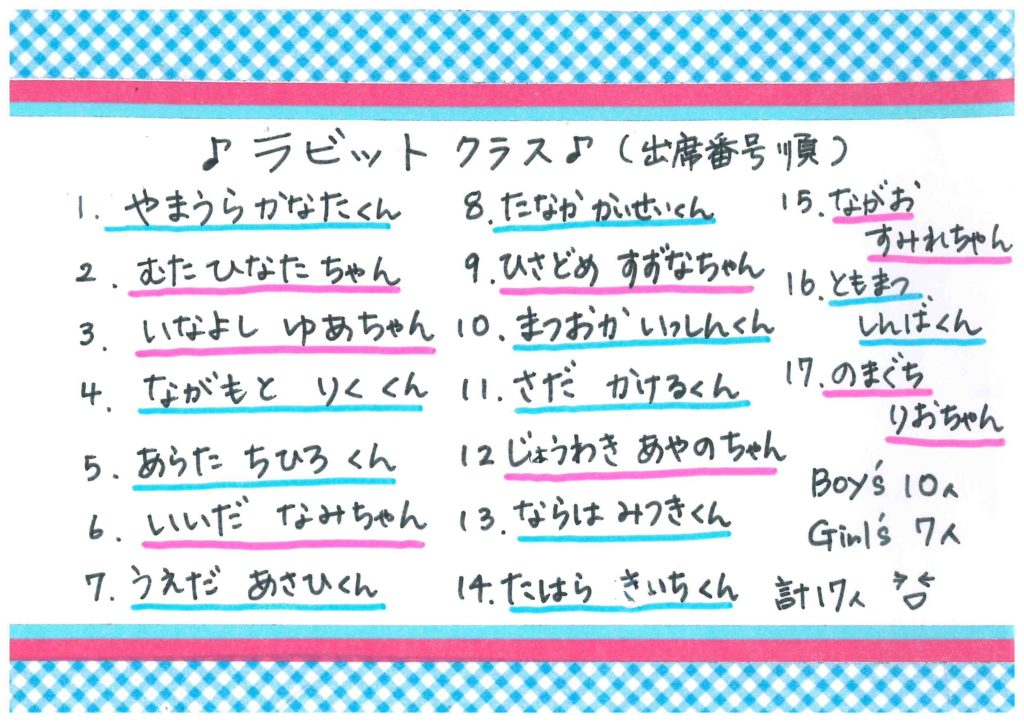 ♪ラビット クラス♪(出席番号順)
1. やまうらかなたくん
2. むた ひなた ちゃん
3. いなよし ゆあちゃん
4. ながもと りく くん
5. あらた ちひろ くん
6. いいだ なみちゃん
7. うえだ あさひくん
8. たなか かいせいくん
9. ひさどめ すずなちゃん
10. まつおか いっしんくん
11. さだ かけるくん
12 じょうわき あやのちゃん
13. ならは みつきくん
14. たはら きいちくん
15. ながお
すみれちゃん
16. ともまつ
しんばくん
17. のまぐち
りおちゃん
Boy's 10人
Girl's 7人
計17人